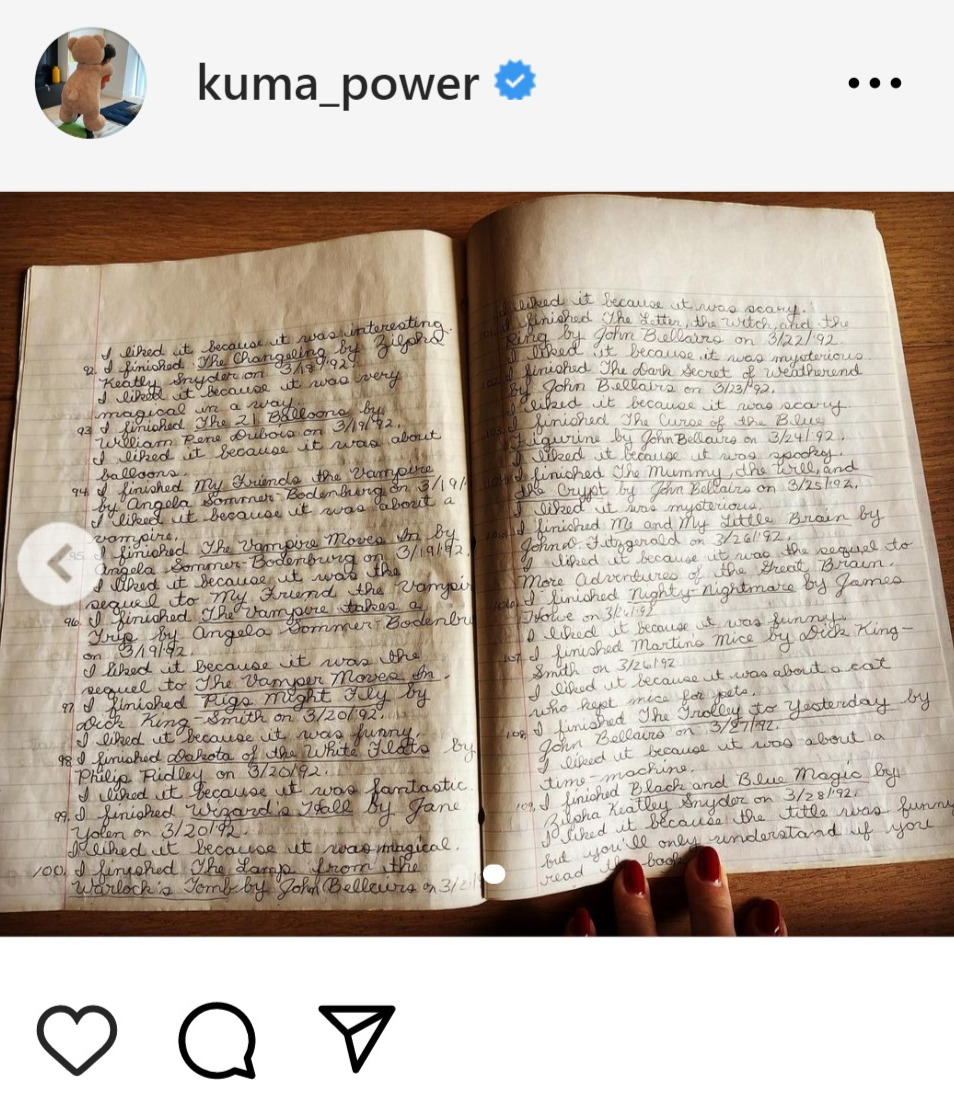 kuma_power
I liked it because it was interesting.
92. I finished The Changeling by Zilpha
Keatly Snyder on 3/18/92.
I liked it because it was very
magical in a way.
93 I finished The 21 Balloons by
William Rene Dubois on 3/19/92.
I liked it because it was about
balloons.
94. I finished My Friends the Vampire
by Angela Sommer-Bodenburg on 3/19/
I liked it because it was about a
vampire.
95. I finished The Vampire Moves In by
Angela Sommer-Bodenburg on 3/19/92.
I liked it because it was the
sequel to My Friend the Vampir
96. I finished The Vampire takes a
Trip by Angela Sommer-Bodenbu
on 3/19/92.
I liked it because it was the
sequel to The Vamper Moves In.
97 I finished Pigs Might Fly by
Dick King-Smith on 3/20/92.
I liked it because it was funny.
98 I finished Dakota of the White Flats by
Philip Ridley on 3/20/92.
I liked it because it was fantastic.
99. I finished Wizard's Hall by Jane
Yolen on 3/20/92.
I liked it because it was magical.
100. I finished The Lamp from the
Warlock's Tomb by John Belleurs on 3/2
I liked it because it was scary.
I finished The Letter, the Witch, and the
Ring by John Bellairs on 3/22/92.
I liked it because it was mysterious.
I finished The Dark Secret of Weatherend
by John Bellairs on 3/23/92.
I liked it because it was scary.
I finished The Curse of the Blue
Figurine by John Bellairs on 3/24/92.
I liked it because it was spooky.
I finished The Mummy, the Will, and
the Crypt by John Bellairs on 3/25/92.
I liked it was mysterious.
I finished Me and My Little Brain by
John D. Fitzgerald on 3/26/92.
I liked it because it was the sequel to
More Adventures of the Great Brain.
106. I finished Nighty-Nightmare by James
Howe on 3/26/92
I liked it because it was funny.
107. I finished Martin's Mice by Dick King-
Smith on 3/26/92
I liked it because it was about a cat
who kept mice for pets.
108. I finished The Trolley to Yesterday by
John Bellairs on 3/27/92.
I liked it because it was about a
time-machine.
109. I finished Black and Blue Magic by
Zilpha Keatley Snyder on 3/28/92.
I liked it because the title was funny
but you'll only understand if you
read the book